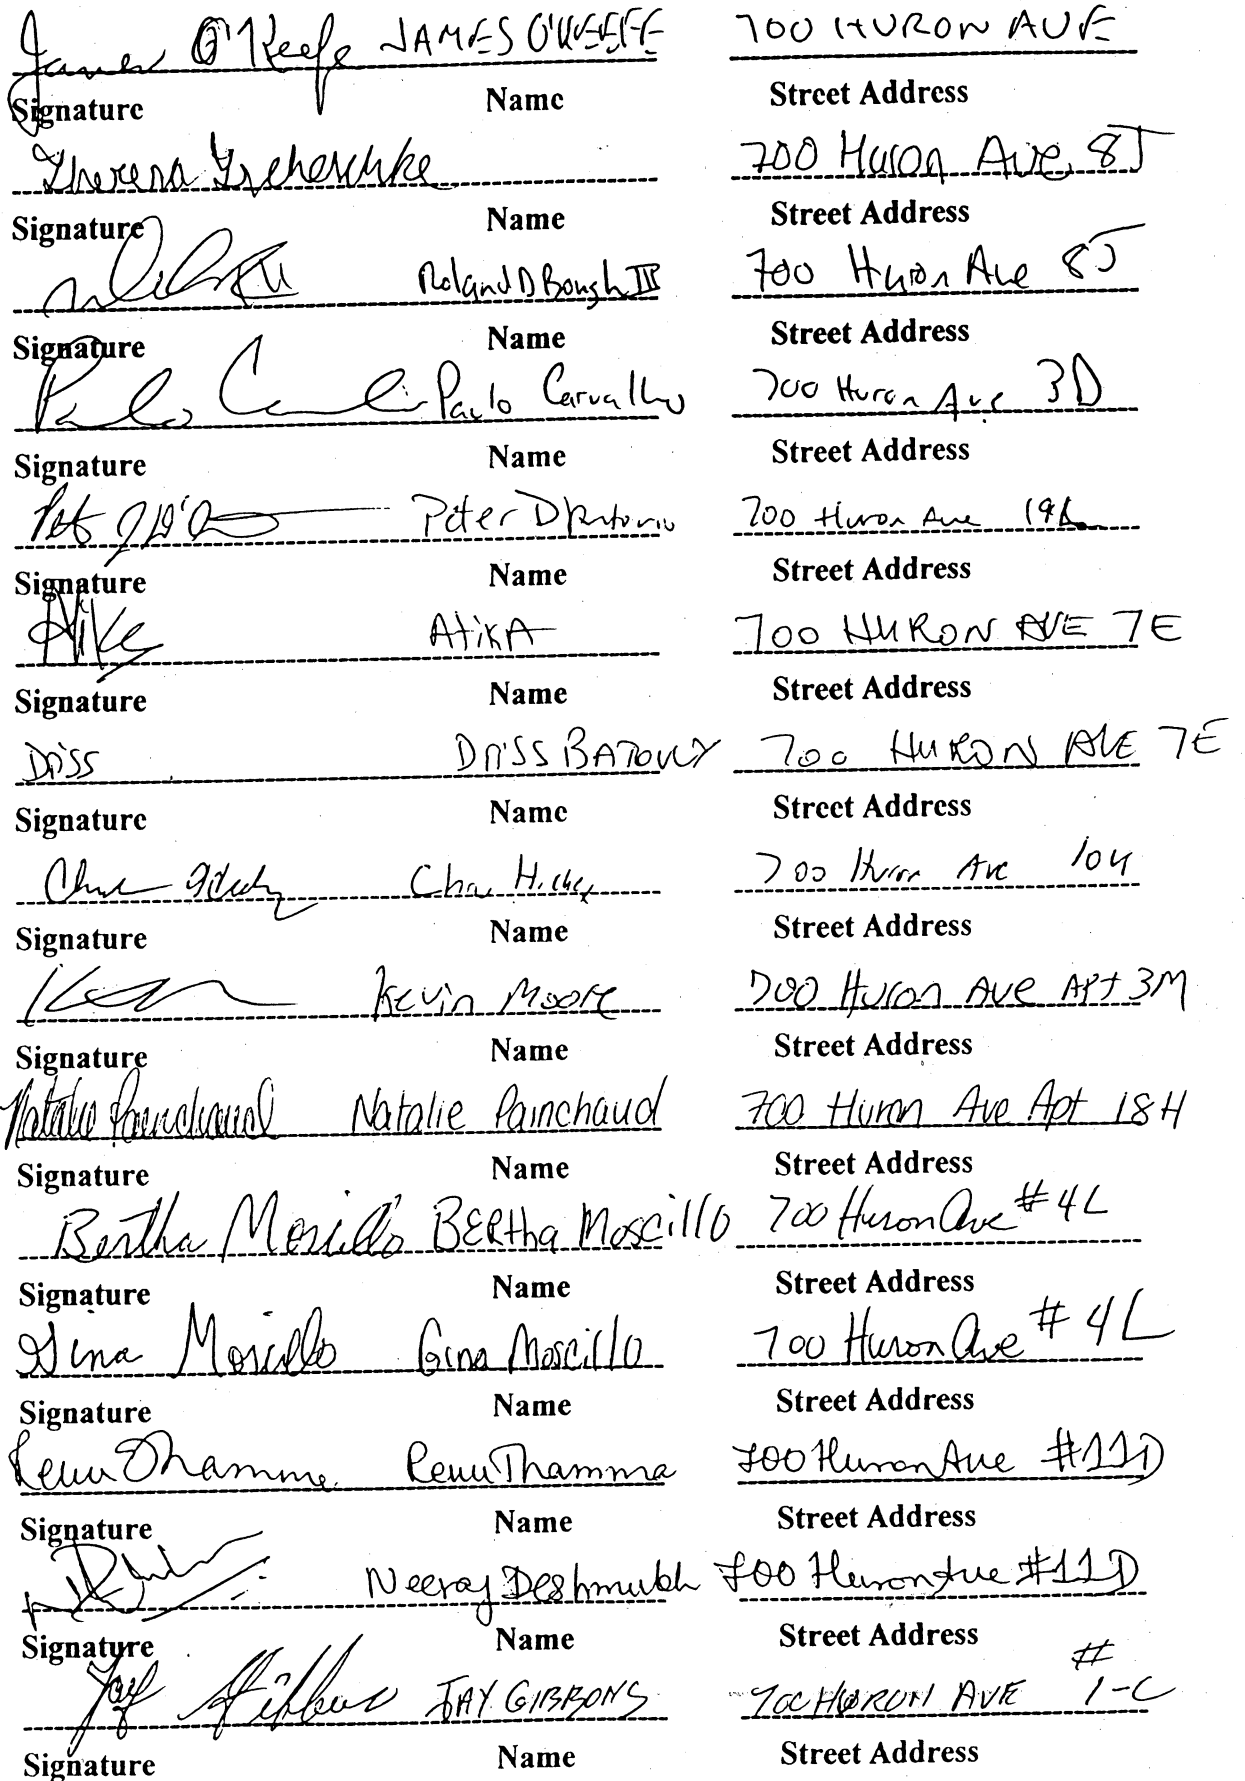 James O'Keefe JAMES O'KEEFE 700 HURON AVE
Signature Name Street Address
Theresa 700 Huron Ave 8J
Signature Name Street Address
Roland D Bough III 700 Huron Ave 8J
Signature Name Street Address
Paulo Carvalho 700 Huron Ave 3D
Signature Name Street Address
Peter 700 Huron Ave 19L
Signature Name Street Address
Atika ATIKA 700 HURON AVE 7E
Signature Name Street Address
Driss DRISS BATOUY 700 HURON AVE 7E
Signature Name Street Address
700 Huron Ave
Signature Name Street Address
Kevin Moore 700 Huron Ave Apt 3M
Signature Name Street Address
Natalie Painchaud Natalie Painchaud 700 Huron Ave Apt 18H
Signature Name Street Address
Bertha Moscillo BERtha Moscillo 700 Huron Ave #4L
Signature Name Street Address
Gina Moscillo Gina Moscillo 700 Huron Ave #4L
Signature Name Street Address
Renu Thamma Renu Thamma 700 Huron Ave #11D
Signature Name Street Address
Neeraj Deshmukh 700 Huron Ave #11D
Signature Name Street Address
Jay Gibbons JAY GIBBONS 700 HURON AVE #1-C
Signature Name Street Address